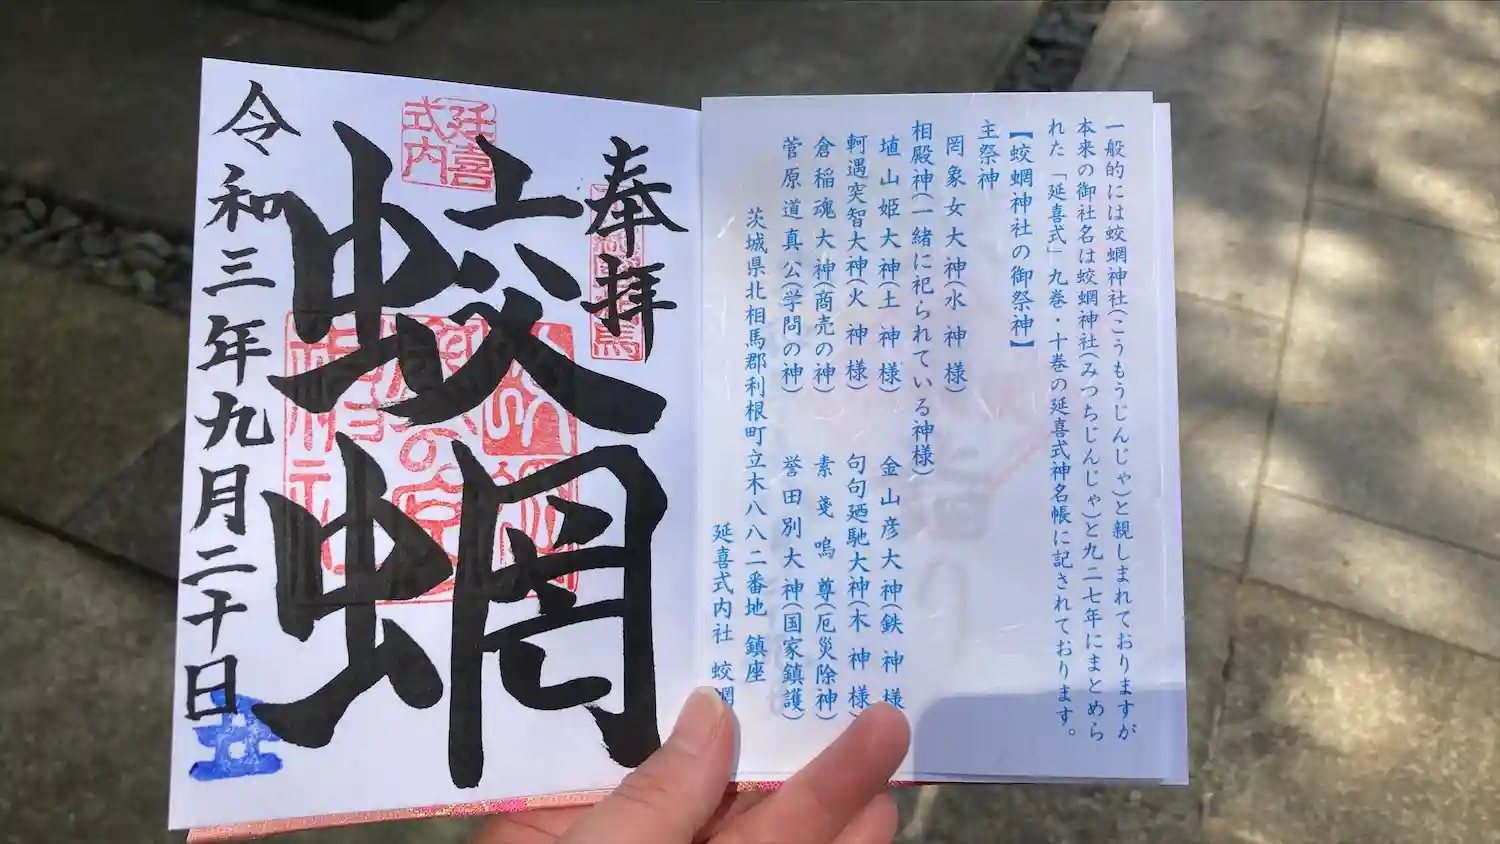 一般的には蛟蝄神社(こうもうじんじゃ)と親しまれておりますが
本来の御社名は蛟蝄神社(みつちじんじゃ)と九二七年にまとめら
れた「延喜式」九巻・十巻の延喜式神名帳に記されております。
【蛟蝄神社の御祭神】
主祭神
罔象女大神(水神様)
相殿神(一緒に祀られている神様)
埴山姫大神(土神様) 金山彦大神(鉄神様
軻遇突智大神(火神様) 句句廼馳大神(木神様)
倉稲魂大神(商売の神) 素戔嗚尊(厄災除神)
菅原道真公(学問の神) 誉田別大神(国家鎮護)
茨城県北相馬郡利根町立木八八二番地 鎮座
延喜式内社 蛟蝄
奉拝
延喜
式内
蛟蝄
令和三年九月二十日
丑